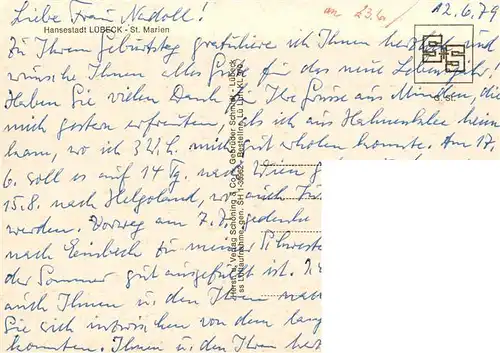 Liebe Frau Nadoll!
am 23.6.
12.6.79
Hansestadt LÜBECK - St. Marien
Zu Ihrem Geburtstag gratuliere ich Ihnen herzlich und
wünsche Ihnen alles Gute für das neue Lebensjahr!
Haben Sie vielen Dank für Ihre Grüße aus München, die
mich gestern erfreuten, als ich aus Hahnenklee heim
kam, wo ich 3 1/2 W. mich gut erholen konnte. Am 17.
6. soll es auf 14 Tg. nach Wien g
15.8. nach Helgoland, wo auch
werden. Vorweg am 7.
nach Einbeck zu meiner Schwester
der Sommer gut ausgefüllt ist.
auch Ihnen u. den Ihren
Sie sich inzwischen von dem lang
konnten. Ihnen u. den Ihren
Horst u. Verlag Schöning & Co. + Gebrüder Schmidt - Lübeck
ss Luftaufnahme -gen. SH 1-36962 - Bestellnr. Lü L